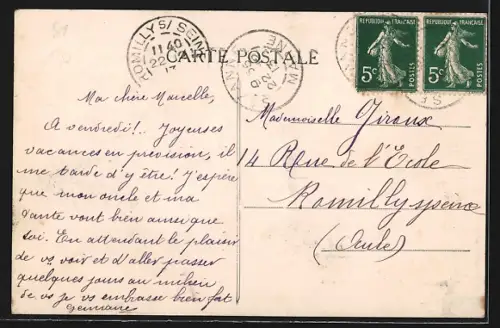 ROMILLY S/ SEINE
11 40
22
CARTE POSTALE
MARNE
REPUBLIQUE FRANÇAISE
5c POSTES
REPUBLIQUE FRANÇAISE
5c POSTES
Ma chère Marcelle,
A vendredi! . Joyeuses
vacances en prévision, il
me tarde d'y être! J'espère
que mon oncle et ma
tante vont bien ainsi que
toi. En attendant le plaisir
de vs voir et d'aller passer
quelques jours au milieu
de vs je vs embrasse bien fort
Germaine
Mademoiselle Giroux
14 Rue de l'Ecole
Romilly s/seine
(Aube)